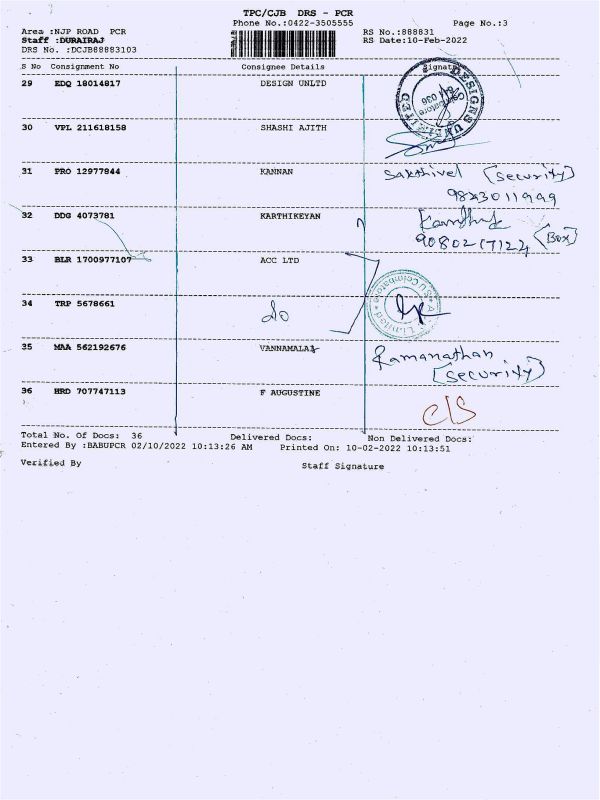 TPC/CJB DRS - PCR
Phone No.:0422-3505555 Page No.:3
Area :NJP ROAD PCR RS No.:888831
Staff :DURAIRAJ RS Date:10-Feb-2022
DRS No. :DCJB88883103
S No Consignment No Consignee Details Signature
29 EDQ 18014817 DESIGN UNLTD
30 VPL 211618158 SHASHI AJITH
31 PRO 12977844 KANNAN Sakthivel [Security]
32 DDG 4073781 KARTHIKEYAN [Box]
33 BLR 1700977107 ACC LTD
34 TRP 5678661 do
35 MAA 562192676 VANNAMALAI Ramanathan
[Security]
36 HRD 707747113 F AUGUSTINE C/S
Total No. Of Docs: 36 Delivered Docs: Non Delivered Docs:
Entered By :BABUPCR 02/10/2022 10:13:26 AM Printed On: 10-02-2022 10:13:51
Verified By Staff Signature